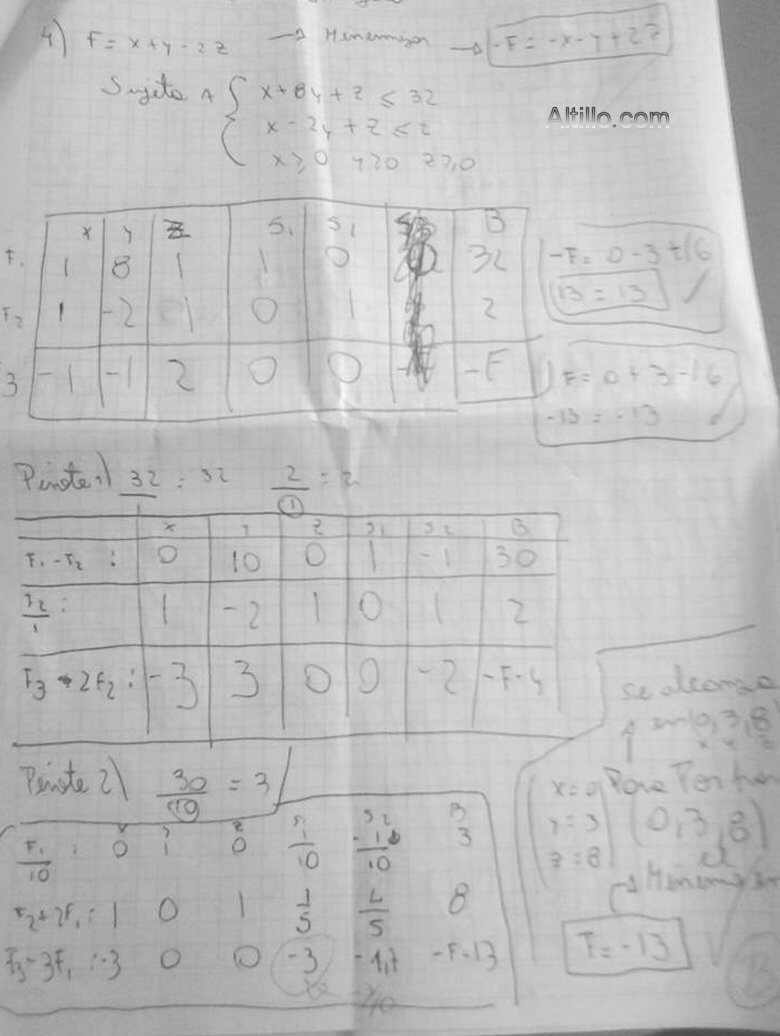 4) F = x+y-2z → Minimizar → -F = -x-y+2z
Sujeta A { x+8y+z ≤ 32
x-2y+z ≤ 2
x≥0 y≥0 z≥0
Altillo.com
x y z S1 S1 B
F1 1 8 1 1 0 32
F2 1 -2 1 0 1 2
3 -1 -1 2 0 0 -F
-F = 0-3+16
13 = 13
F = 0+3-16
-13 = -13
Pivote 1) 32/1 = 32 2/1 = 2
x y z S1 S2 B
F1-F2 : 0 10 0 1 -1 30
F2/1 : 1 -2 1 0 1 2
F3-2F2 : -3 3 0 0 -2 -F-4
Pivote 2) 30/10 = 3
x y z S1 S2 B
F1/10 : 0 1 0 1/10 -1/10 3
F2+2F1 : 1 0 1 1/5 4/5 8
F3-3F1 : -3 0 0 -3 -1,7 -F-13
se alcanza
en (0,3,8)
x y z
x = 0
y = 3
z = 8
Para
(0,3,8)
el
Minimizar
F = -13